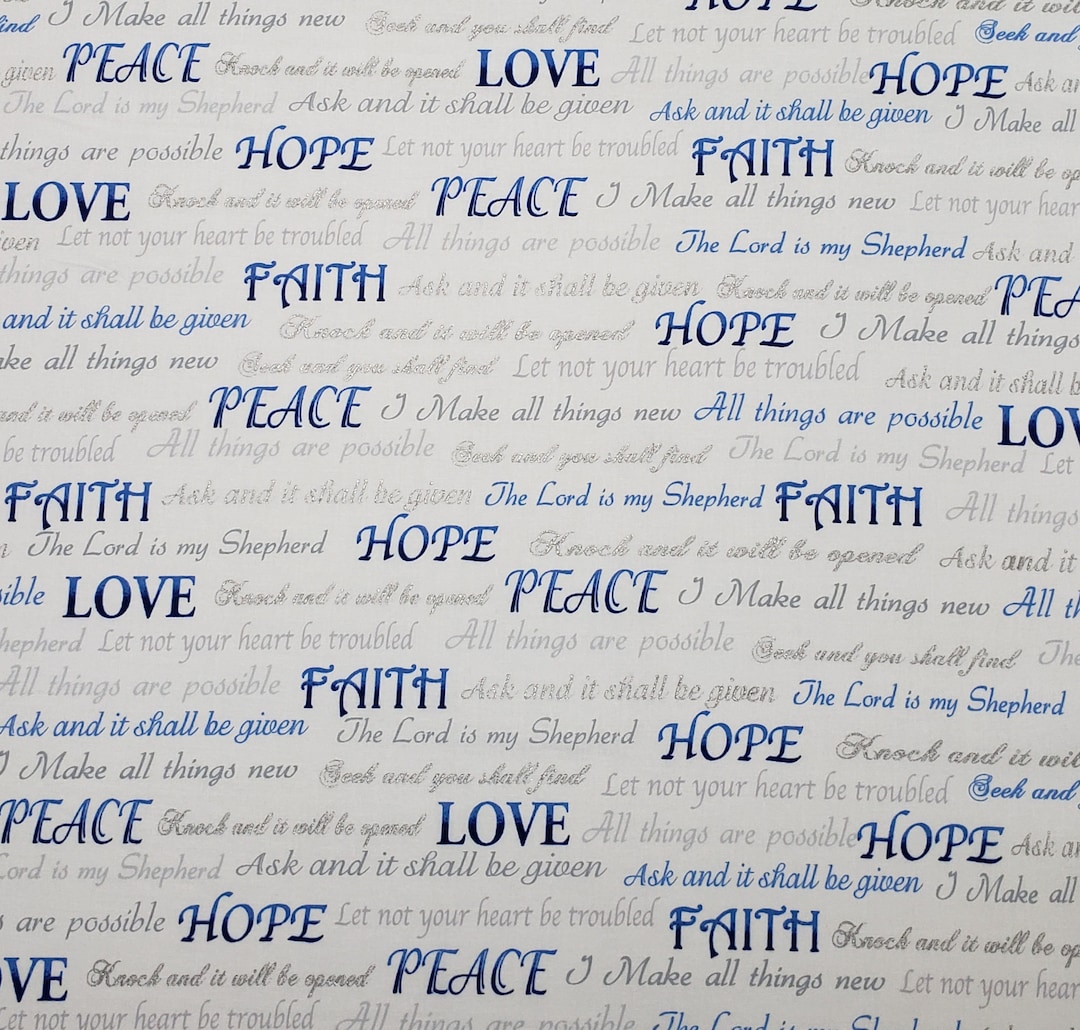 HOPE Knock and it will
find I Make all things new Seek and you shall find Let not your heart be troubled Seek and
given PEACE Knock and it will be opened LOVE All things are possible HOPE Ask an
The Lord is my Shepherd Ask and it shall be given Ask and it shall be given I Make all
things are possible HOPE Let not your heart be troubled FAITH Knock and it will be op
LOVE Knock and it will be opened PEACE I Make all things new Let not your hear
iven Let not your heart be troubled All things are possible The Lord is my Shepherd Ask and
things are possible FAITH Ask and it shall be given Knock and it will be opened PEA
and it shall be given Knock and it will be opened HOPE I Make all things
ke all things new Seek and you shall find Let not your heart be troubled Ask and it shall b
and it will be opened PEACE I Make all things new All things are possible LOV
be troubled All things are possible Seek and you shall find The Lord is my Shepherd Let
FAITH Ask and it shall be given The Lord is my Shepherd FAITH All things
n The Lord is my Shepherd HOPE Knock and it will be opened Ask and it
sible LOVE Knock and it will be opened PEACE I Make all things new All th
hepherd Let not your heart be troubled All things are possible Seek and you shall find The
All things are possible FAITH Ask and it shall be given The Lord is my Shepherd
Ask and it shall be given The Lord is my Shepherd HOPE Knock and it wil
I Make all things new Seek and you shall find Let not your heart be troubled Seek and
PEACE Knock and it will be opened LOVE All things are possible HOPE Ask an
Lord is my Shepherd Ask and it shall be given Ask and it shall be given I Make all
s are possible HOPE Let not your heart be troubled FAITH Knock and it will be op
OVE Knock and it will be opened PEACE I Make all things new Let not your hear
Let not your heart be troubled All things are possible The Lord is my Shepherd